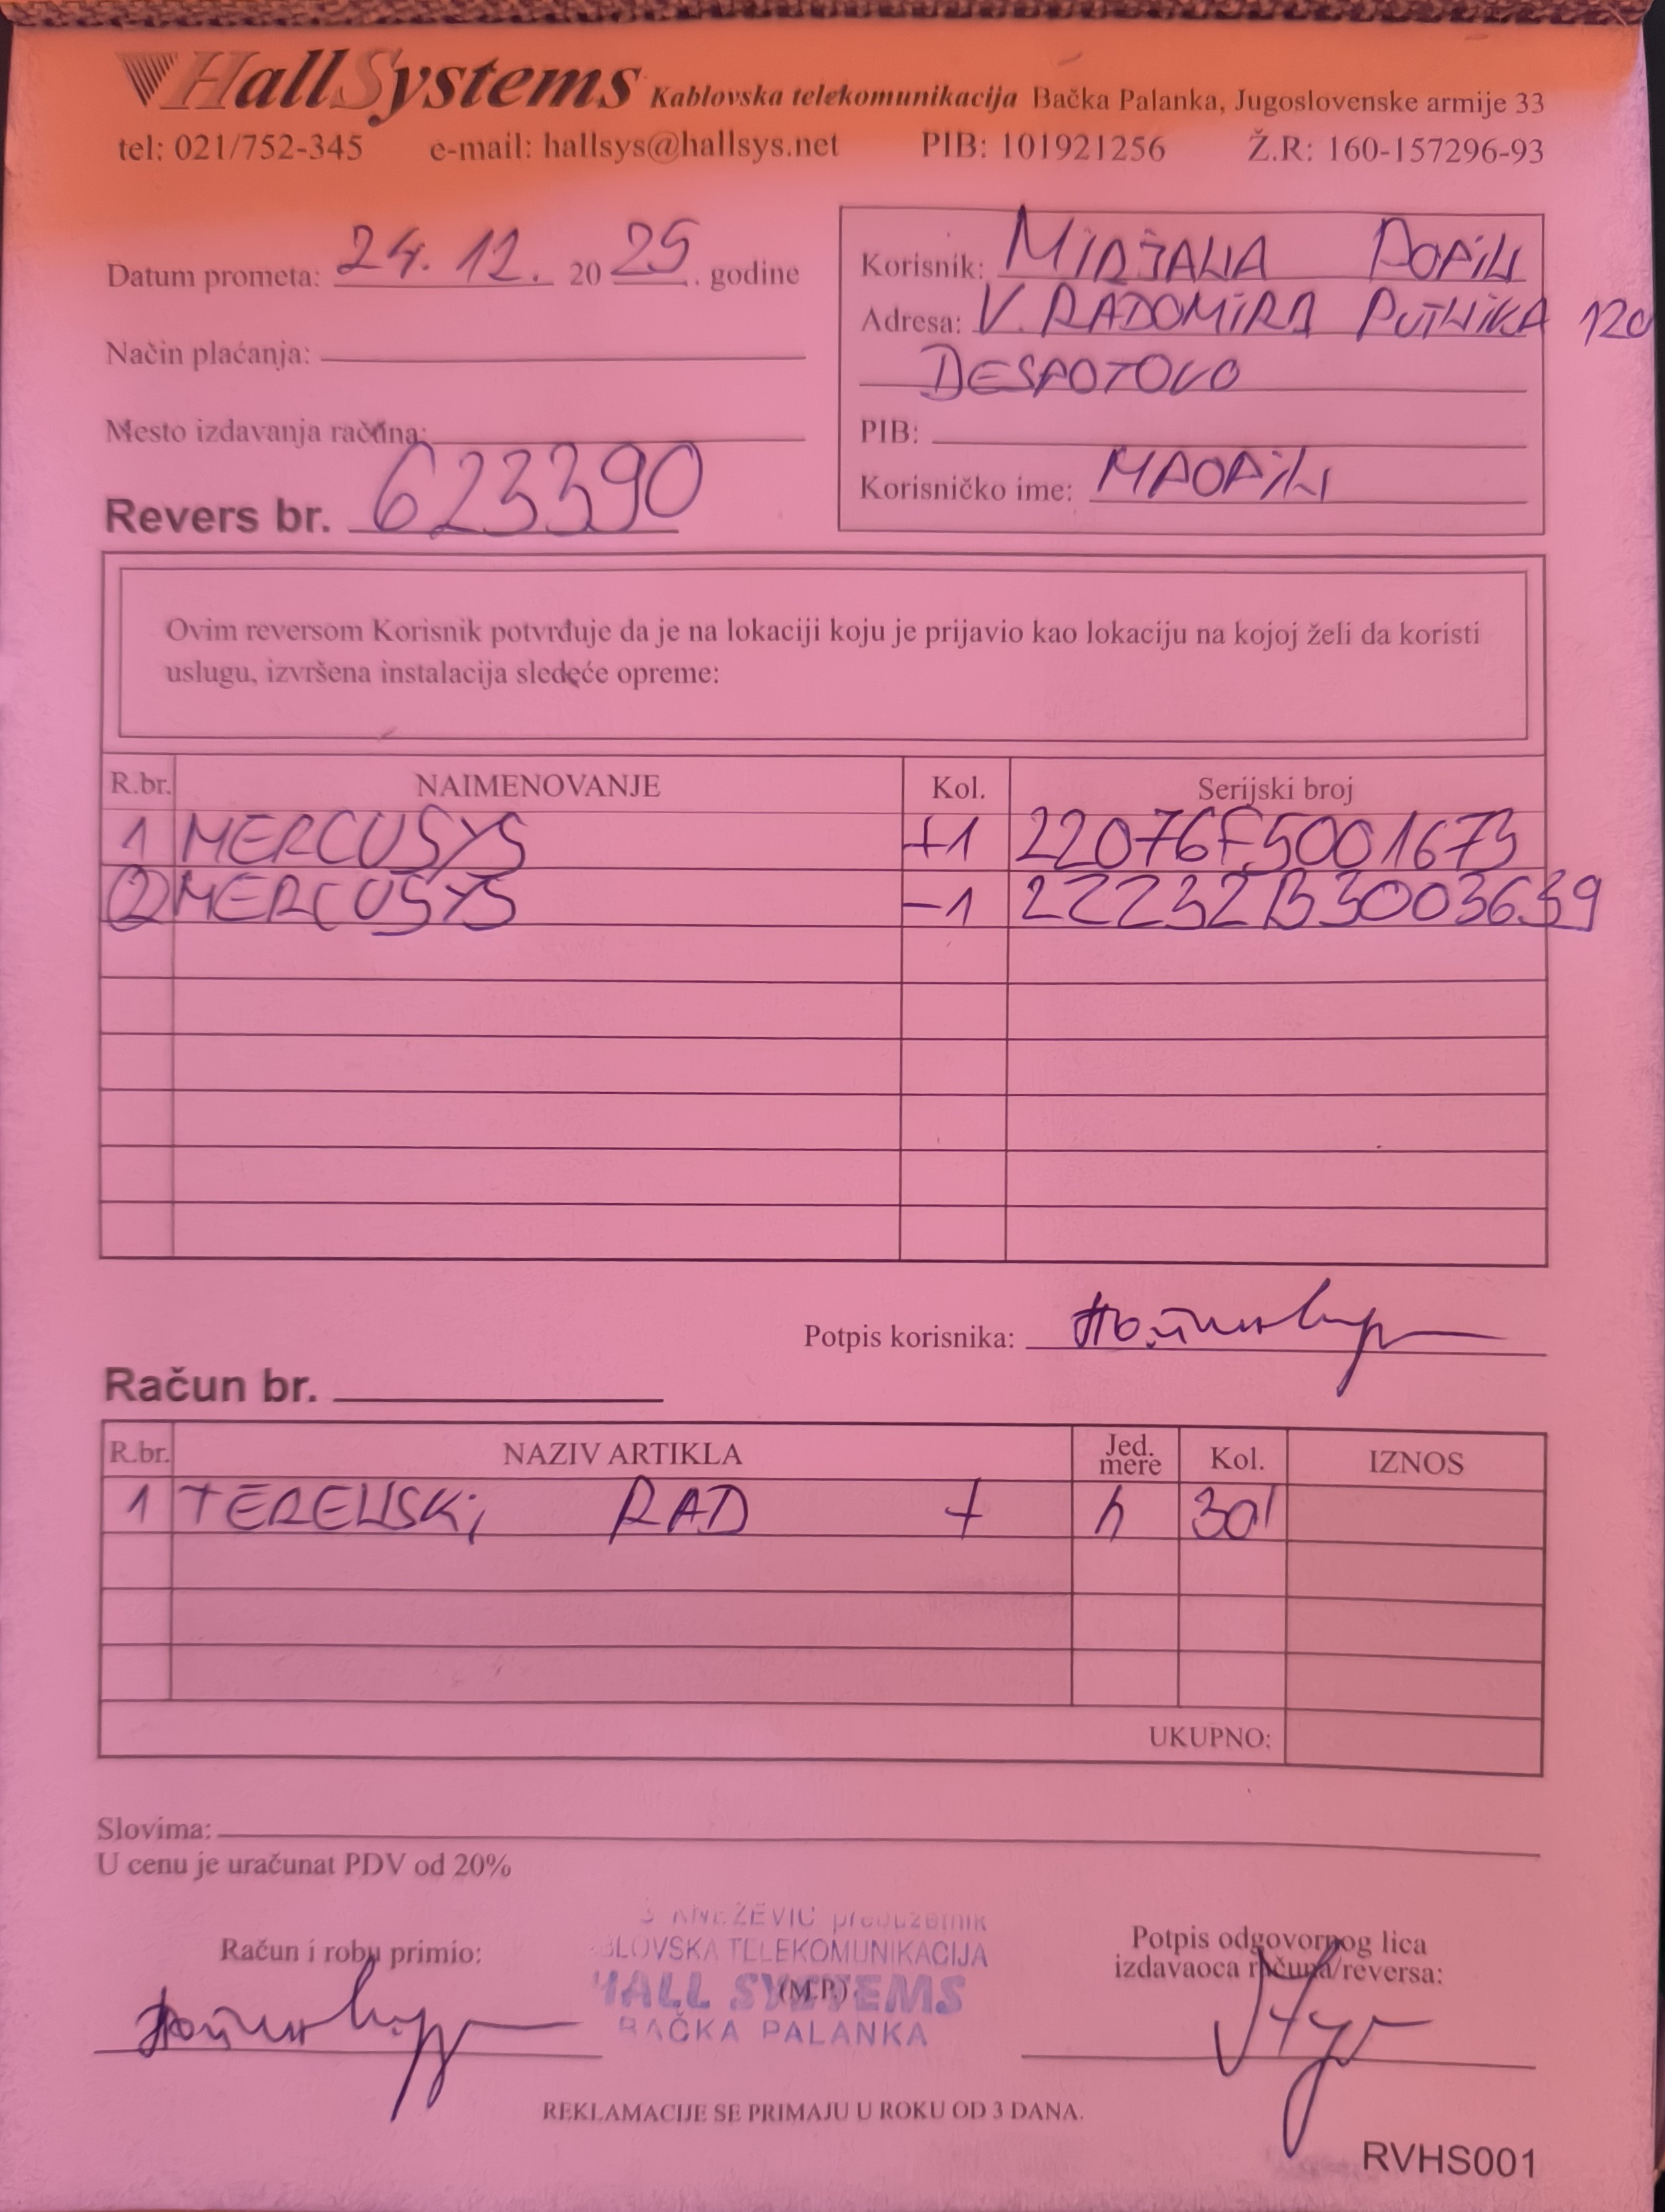 HallSystems Kablovska telekomunikacija Bačka Palanka, Jugoslovenske armije 33
tel: 021/752-345 e-mail: hallsys@hallsys.net PIB: 101921256 Ž.R: 160-157296-93
Datum prometa: 24. 12. 20 25. godine
Način plaćanja:
Mesto izdavanja računa:
Revers br. 623390
Korisnik: MIRJANA POPIN
Adresa: V. RADOMIRA PUTNIKA 120
DESPOTOVO
PIB:
Korisničko ime: MPOPIN
Ovim reversom Korisnik potvrđuje da je na lokaciji koju je prijavio kao lokaciju na kojoj želi da koristi
uslugu, izvršena instalacija sledeće opreme:
R.br. NAIMENOVANJE Kol. Serijski broj
1 MERCUSYS +1 22076F5001673
2 MERCUSYS -1 22232B3003639
Potpis korisnika:
Račun br.
R.br. NAZIV ARTIKLA Jed. mere Kol. IZNOS
1 TERENSKI RAD + h 30'
UKUPNO:
Slovima:
U cenu je uračunat PDV od 20%
Račun i robu primio:
KNEŽEVIĆ preduzetnik
TELEKOMUNIKACIJA
HALL SYSTEMS
(M.P.)
BAČKA PALANKA
Potpis odgovornog lica
izdavaoca računa/reversa:
REKLAMACIJE SE PRIMAJU U ROKU OD 3 DANA.
RVHS001